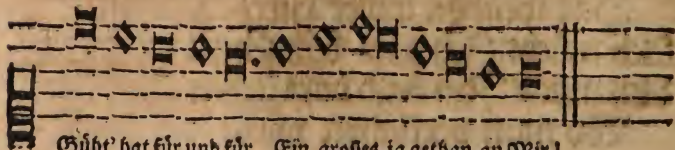 Güht' hat für und für. Ein grosses ja gethan an Mir!